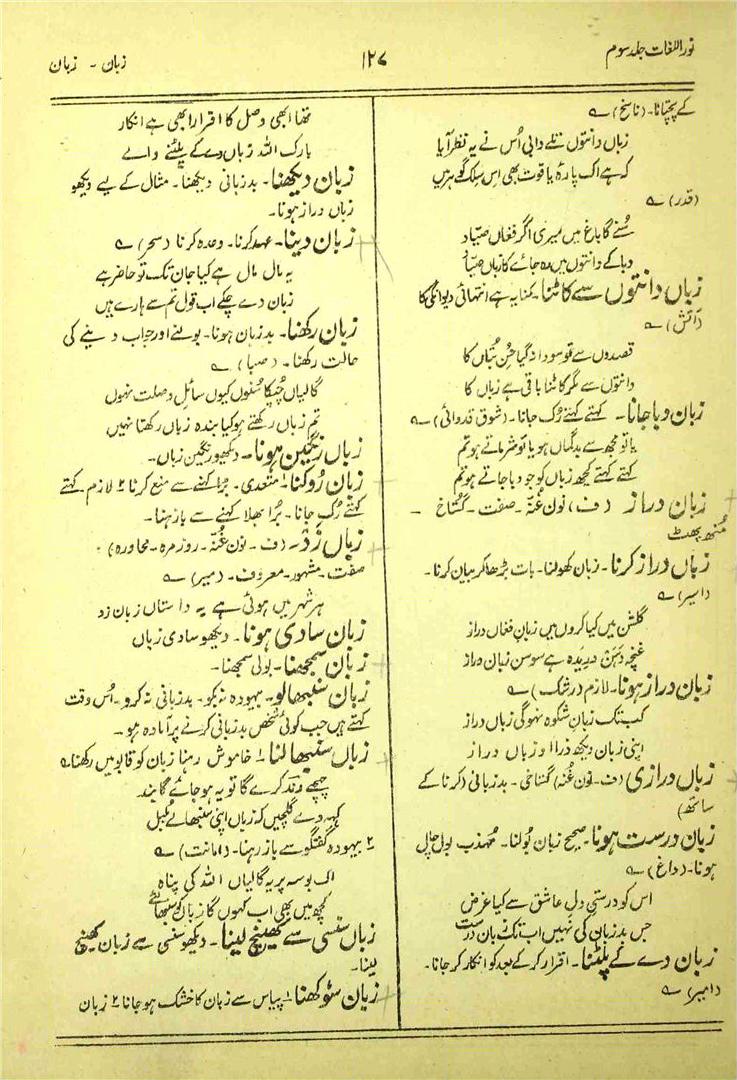 نور اللغات جلد سوم
۱۲۷
زبان - زبان
کے پچتیانا۔ (ناسخ) ؎
زباں دانتوں تلے دابی اُس نے یہ نظر آیا
کہ ہے اک پارۂ یاقوت بھی اس سلک گوہر میں
(قدر) ؎
سُنے گا باغ میں میری اگر فغاں صیّاد
دبا کے دانتوں میں رہ جائے گا زباں صیّاد
زباں دانتوں سے کاٹنا۔ کنایہ ہے انتہائی دیوانگی کا
(آتش) ؎
قصدوں سے تو سودا نہ گیا حُسنِ بُتاں کا
دانتوں سے مگر کاٹنا باقی ہے زباں کا
زبان دبا جانا۔ کہتے کہتے رُک جانا۔ (شوق قدوائی) ؎
یا تو مجھ سے بدگماں ہو یا تو شرماتے ہو تم
کہتے کہتے کچھ زباں کو جو دبا جاتے ہو تم
زبان دراز (ف) نون غنّہ۔ صفت۔ گستاخ۔
مُنھ پھٹ
زباں دراز کرنا۔ زبان کھولنا۔ بات بڑھا کر بیان کرنا۔
(اسیر) ؎
گلشن میں کیا کروں میں زبانِ فغاں دراز
غنچہ دہن دریدہ ہے سوسن زبان دراز
زبان دراز ہونا۔ لازم (رشک) ؎
کب تک زبانِ شکوہ نہوگی زباں دراز
اپنی زبان دیکھ ذرا او زباں دراز
زباں درازی (ف۔ نون غنّہ) گستاخی۔ بدزبانی (کرنا کے
ساتھ)
زبان درست ہونا۔ صحیح زبان بولنا۔ مہذب بول چال
ہونا۔ (داغ) ؎
اس کو درستیِ دلِ عاشق سے کیا غرض
جس بدزبان کی نہیں اب تک زبان درست
زبان دے کے پلٹنا۔ اقرار کرکے بعد کو انکار کر جانا۔
(امیر) ؎
تھا ابھی وصل کا اقرار ابھی ہے انکار
بارک اللہ زباں دے کے پلٹنے والے
زبان دیکھنا۔ بدزبانی دیکھنا۔ مثال کے لیے دیکھو
زباں دراز ہونا۔
زبان دینا۔ عہد کرنا۔ وعدہ کرنا (سحر) ؎
یہ مال مال ہے کیا جان تک تو حاضر ہے
زبان دے چکے اب قول تم سے ہارے ہیں
زبان رکھنا۔ بدزبان ہونا۔ بولنے اور جواب دینے کی
حالت رکھنا۔ (صبا) ؎
گالیاں چپکا سُنوں کیوں سائلِ وصلت نہوں
تم زباں رکھتے ہو کیا بندہ زباں رکھتا نہیں
زباں رنگین ہونا۔ دیکھو رنگین زباں۔
زبان روکنا ۱ متعدی۔ بُرا کہنے سے منع کرنا ۲ لازم۔ کہتے
کہتے رُک جانا۔ بُرا بھلا کہنے سے باز رہنا۔
زباں زد۔ (ف۔ نون غُنّہ۔ روزمرہ۔ محاورہ)
صفت۔ مشہور۔ معروف۔ (میر) ؎
ہر شہر میں ہوئی ہے یہ داستاں زبان زد
زبان سادی ہونا۔ دیکھو سادی زباں
زبان سمجھنا۔ بولی سمجھنا۔
زبان سنبھالو۔ بیہودہ نہ بکو۔ بدزبانی نہ کرو۔ اُس وقت
کہتے ہیں جب کوئی شخص بدزبانی کرنے پر آمادہ ہو۔
زباں سنبھالنا ۱ خاموش رہنا زبان کو قابو میں رکھنا ؎
چہچے رند کرے گا تو یہ ہو جائے گا بند
کہہ دے گلچیں کہ زباں اپنی سنبھالے بلبل
۲ بیہودہ گفتگو سے باز رہنا۔ (امانت) ؎
اک بوسہ پر یہ گالیاں اللہ کی پناہ
کچھ میں بھی اب کہوں گا زباں کو سنبھالئے
زباں سنسی سے کھینچ لینا۔ دیکھو سنسی سے زبان کھینچ
لینا۔
زبان سوکھنا ۱ پیاس سے زبان کا خشک ہو جانا ۲ زبان